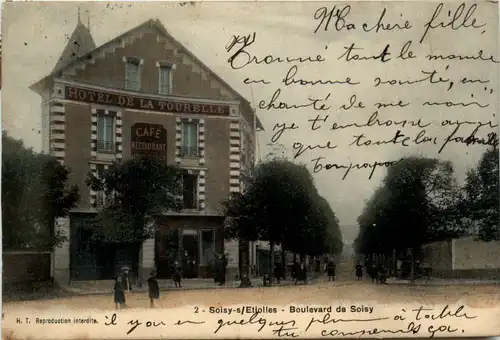 Ma chère fille,
Trouvé tout le monde
en bonne santé, en-
chanté de me voir
je t'embrasse ainsi
que toute la famille
Ton papa
HOTEL DE LA TOURELLE
CAFÉ
RESTAURANT
2 - Soisy-s/Etiolles - Boulevard de Soisy
H. T. Reproduction interdite
il y a eu quelques plum à table
tu connais ça.